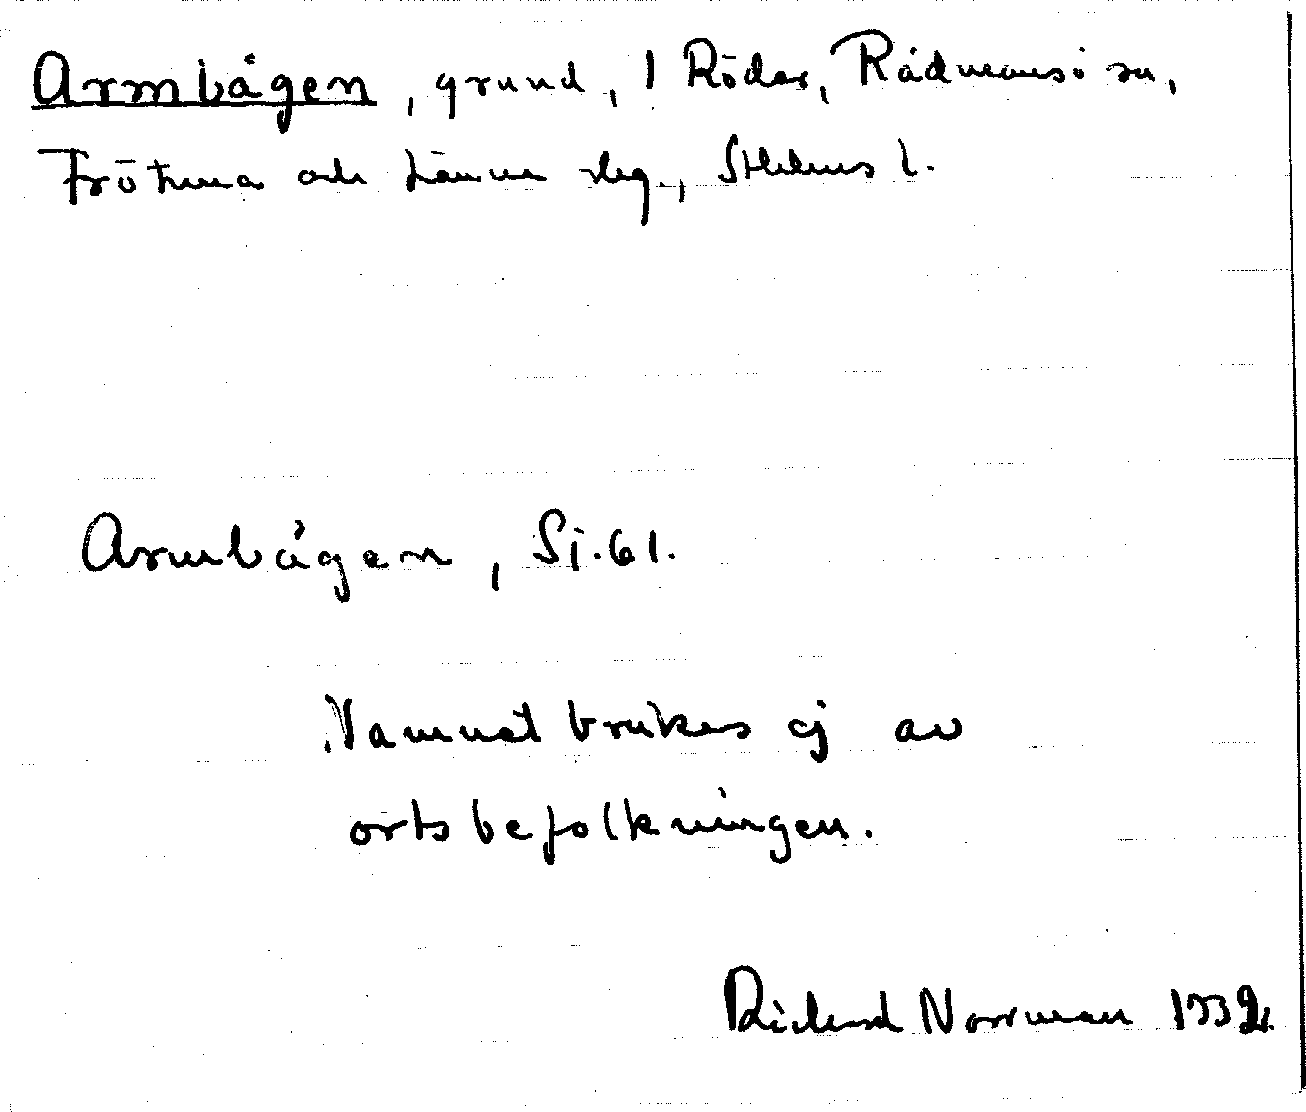 Armbågen, grund, 1 Röder, Rådmansö sn,
Frötuna och Länna slg., Sthlms l.
Armbågen, Sj. 61.
Namnet brukas ej av
ortsbefolkningen.
Rickard Norrman 1932.